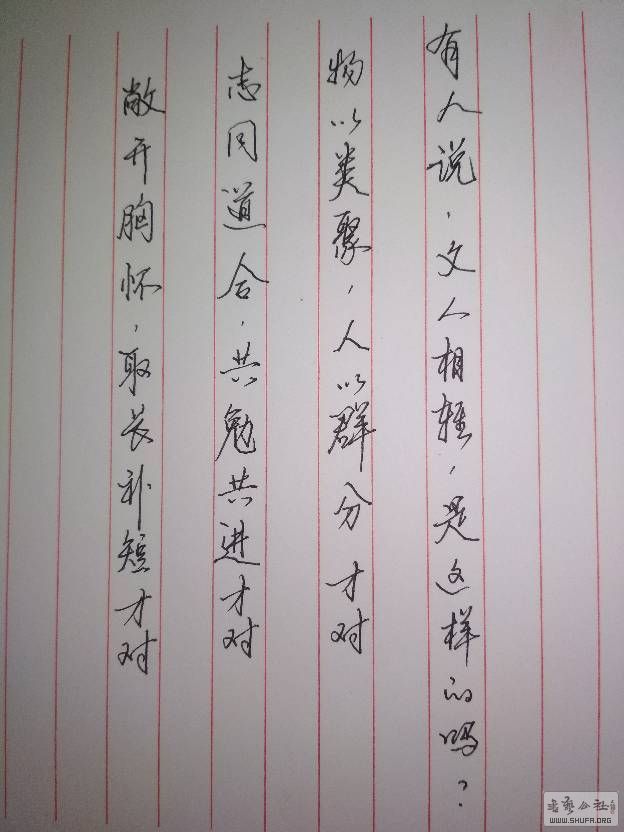 有人说，文人相轻，是这样的吗？
物以类聚，人以群分才对
志同道合，共勉共进才对
敞开胸怀，取长补短才对
书艺公社
WWW.SHUFA.ORG